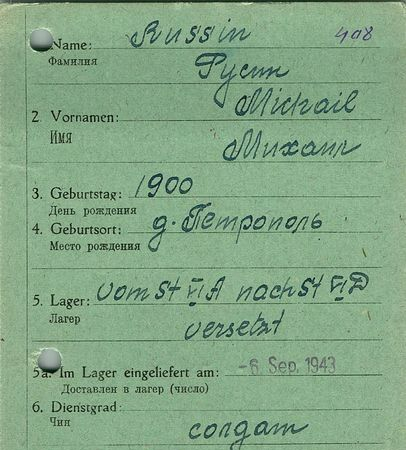 Name: Russin 408
Фамилия
Русин
Michail
2. Vornamen:
Имя
Михаил
3. Geburtstag: 1900
День рождения
4. Geburtsort: д. Петрополь
Место рождения
5. Lager: vom St VI A nach St VI D
Лагер versetzt
5a. Im Lager eingeliefert am: -6. Sep. 1943
Доставлен в лагер (число)
6. Dienstgrad:
Чин солдат